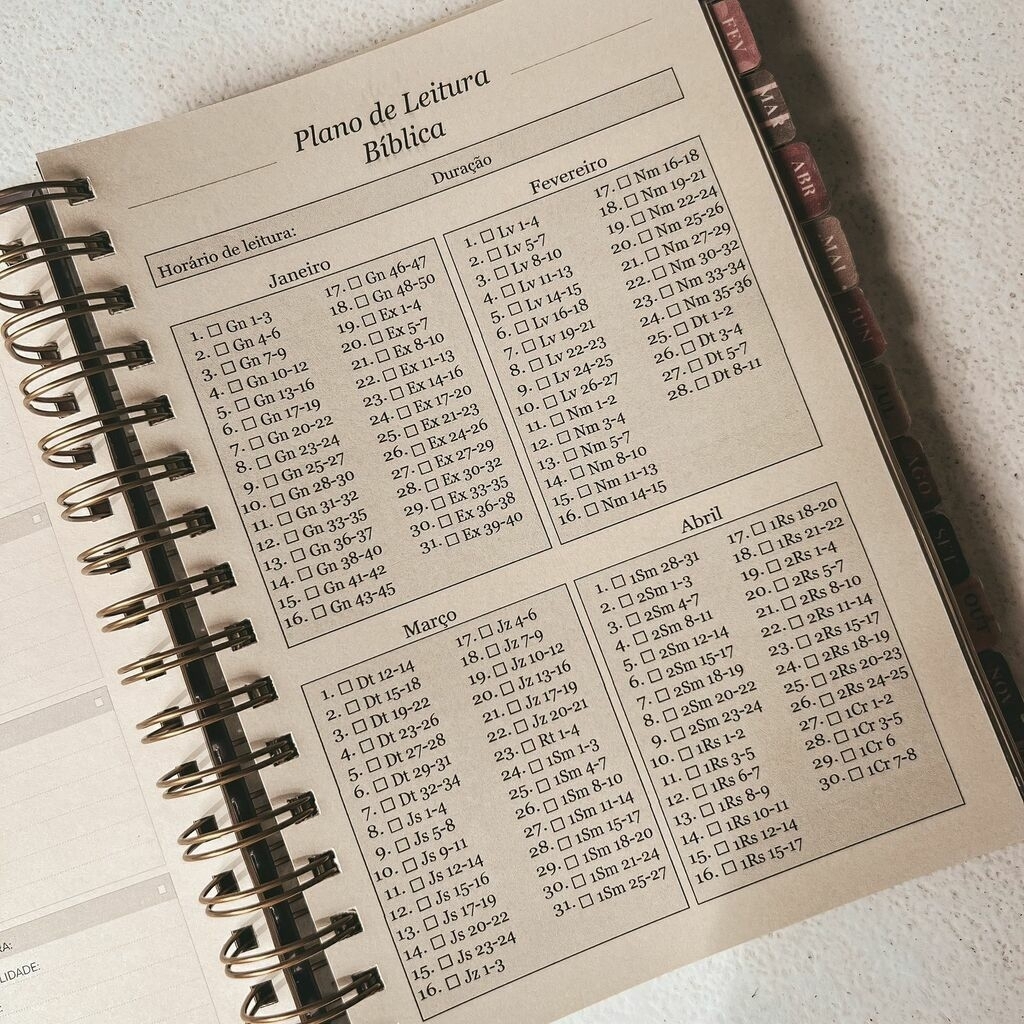 Plano de Leitura
Bíblica
Duração
Horário de leitura:
Janeiro
1. Gn 1-3
2. Gn 4-6
3. Gn 7-9
4. Gn 10-12
5. Gn 13-16
6. Gn 17-19
7. Gn 20-22
8. Gn 23-24
9. Gn 25-27
10. Gn 28-30
11. Gn 31-32
12. Gn 33-35
13. Gn 36-37
14. Gn 38-40
15. Gn 41-42
16. Gn 43-45
17. Gn 46-47
18. Gn 48-50
19. Ex 1-4
20. Ex 5-7
21. Ex 8-10
22. Ex 11-13
23. Ex 14-16
24. Ex 17-20
25. Ex 21-23
26. Ex 24-26
27. Ex 27-29
28. Ex 30-32
29. Ex 33-35
30. Ex 36-38
31. Ex 39-40
Fevereiro
1. Lv 1-4
2. Lv 5-7
3. Lv 8-10
4. Lv 11-13
5. Lv 14-15
6. Lv 16-18
7. Lv 19-21
8. Lv 22-23
9. Lv 24-25
10. Lv 26-27
11. Nm 1-2
12. Nm 3-4
13. Nm 5-7
14. Nm 8-10
15. Nm 11-13
16. Nm 14-15
17. Nm 16-18
18. Nm 19-21
19. Nm 22-24
20. Nm 25-26
21. Nm 27-29
22. Nm 30-32
23. Nm 33-34
24. Nm 35-36
25. Dt 1-2
26. Dt 3-4
27. Dt 5-7
28. Dt 8-11
Março
1. Dt 12-14
2. Dt 15-18
3. Dt 19-22
4. Dt 23-26
5. Dt 27-28
6. Dt 29-31
7. Dt 32-34
8. Js 1-4
9. Js 5-8
10. Js 9-11
11. Js 12-14
12. Js 15-16
13. Js 17-19
14. Js 20-22
15. Js 23-24
16. Jz 1-3
17. Jz 4-6
18. Jz 7-9
19. Jz 10-12
20. Jz 13-16
21. Jz 17-19
22. Jz 20-21
23. Rt 1-4
24. 1Sm 1-3
25. 1Sm 4-7
26. 1Sm 8-10
27. 1Sm 11-14
28. 1Sm 15-17
29. 1Sm 18-20
30. 1Sm 21-24
31. 1Sm 25-27
Abril
1. 1Sm 28-31
2. 2Sm 1-3
3. 2Sm 4-7
4. 2Sm 8-11
5. 2Sm 12-14
6. 2Sm 15-17
7. 2Sm 18-19
8. 2Sm 20-22
9. 2Sm 23-24
10. 1Rs 1-2
11. 1Rs 3-5
12. 1Rs 6-7
13. 1Rs 8-9
14. 1Rs 10-11
15. 1Rs 12-14
16. 1Rs 15-17
17. 1Rs 18-20
18. 1Rs 21-22
19. 2Rs 1-4
20. 2Rs 5-7
21. 2Rs 8-10
22. 2Rs 11-14
23. 2Rs 15-17
24. 2Rs 18-19
25. 2Rs 20-23
26. 2Rs 24-25
27. 1Cr 1-2
28. 1Cr 3-5
29. 1Cr 6
30. 1Cr 7-8
FEV
MAR
ABR
MAI
JUN
JUL
AGO
SET
OUT
NOV
RA:
LIDADE: